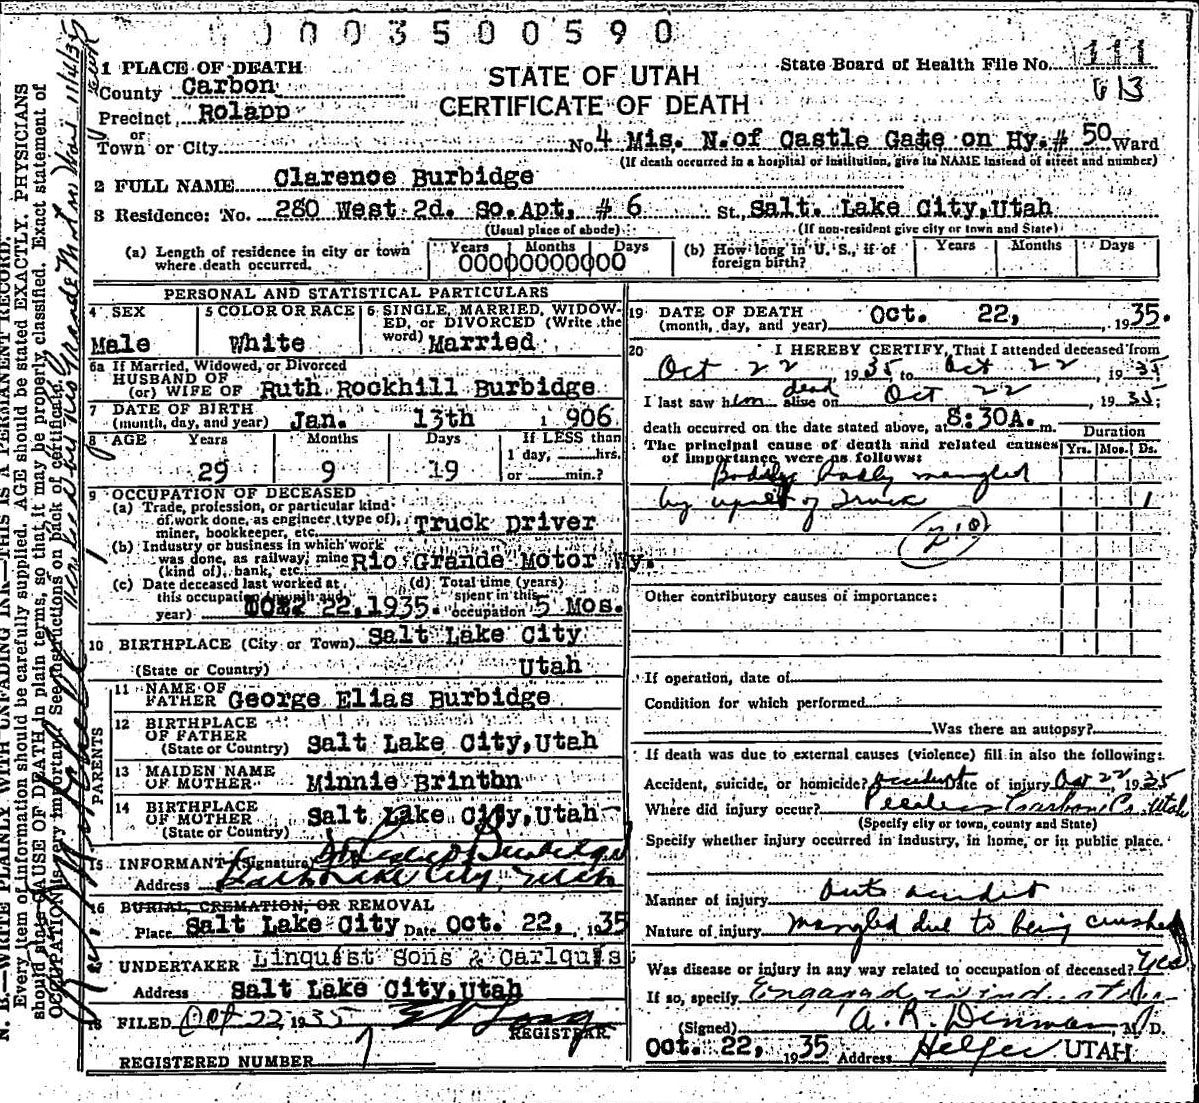 0003500590
1 PLACE OF DEATH
County Carbon
Precinct Rolapp
or
Town or City
STATE OF UTAH
CERTIFICATE OF DEATH
State Board of Health File No. 111
613
No. 4 Mis. N.of Castle Gate on Hy.# 50 Ward
(If death occurred in a hospital or institution, give its NAME instead of street and number)
2 FULL NAME Clarence Burbidge
3 Residence: No. 280 West 2d. So.Apt, # 6 St. Salt. Lake City,Utah
(Usual place of abode)
(If non-resident give city or town and State)
(a) Length of residence in city or town where death occurred.
Years Months Days
00000000000
(b) How long in U. S., if of foreign birth?
Years Months Days
PERSONAL AND STATISTICAL PARTICULARS
4 SEX
Male
5 COLOR OR RACE
White
6 SINGLE, MARRIED, WIDOWED, or DIVORCED (Write the word)
Married
6a If Married, Widowed, or Divorced
HUSBAND OF
(or) WIFE OF Ruth Rockhill Burbidge
7 DATE OF BIRTH
(month, day, and year) Jan. 13th 1906
8 AGE Years Months Days If LESS than
29 9 19
1 day, hrs.
or min.?
9 OCCUPATION OF DECEASED
(a) Trade, profession, or particular kind
of work done, as engineer (type of),
miner, bookkeeper, etc. Truck Driver
(b) Industry or business in which work
was done, as railway, mine
(kind of), bank, etc. Rio Grande Motor Wy.
(c) Date deceased last worked at
this occupation (month and
year) 22,1935.
(d) Total time (years)
spent in this
occupation 5 Mos.
10 BIRTHPLACE (City or Town) Salt Lake City
(State or Country) Utah
PARENTS
11 NAME OF
FATHER George Elias Burbidge
12 BIRTHPLACE
OF FATHER
(State or Country) Salt Lake City,Utah
13 MAIDEN NAME
OF MOTHER Minnie Brinton
14 BIRTHPLACE
OF MOTHER
(State or Country) Salt Lake City,Utah
15 INFORMANT (Signature) Burbidge
Address Salt Lake City, Utah
16 BURIAL, CREMATION, OR REMOVAL
Place Salt Lake City Date Oct. 22, 1935
17 UNDERTAKER Linquist Sons & Carlquis
Address Salt Lake City,Utah
18 FILED Oct 22, 1935
REGISTRAR
REGISTERED NUMBER 7
19 DATE OF DEATH
(month, day, and year) Oct. 22, 1935.
20 I HEREBY CERTIFY, That I attended deceased from
Oct 22 1935 to Oct 22, 1935
I last saw him alive on dead Oct 22, 1935;
death occurred on the date stated above, at 8:30A. m.
The principal cause of death and related causes
of importance were as follows:
Duration
Yrs. Mos. Ds.
Badly mangled
by upset of Truck 1
210
Other contributory causes of importance:
If operation, date of
Condition for which performed
Was there an autopsy?
If death was due to external causes (violence) fill in also the following:
Accident, suicide, or homicide? accident Date of injury Oct 22, 1935
Where did injury occur? Peerless Carbon Co. Utah
(Specify city or town, county and State)
Specify whether injury occurred in industry, in home, or in public place.
Manner of injury auto accident
Nature of injury Mangled due to being crushed
Was disease or injury in any way related to occupation of deceased? Yes
If so, specify Engaged in industry
(Signed) A. R. Dinman, M. D.
Oct. 22, 1935 Address Helper UTAH
N. B.—WRITE PLAINLY WITH UNFADING INK—THIS IS A PERMANENT RECORD.
Every item of information should be carefully supplied. AGE should be stated EXACTLY. PHYSICIANS
should state CAUSE OF DEATH in plain terms, so that it may be properly classified. Exact statement of
OCCUPATION is very important. See instructions on back of certificate.